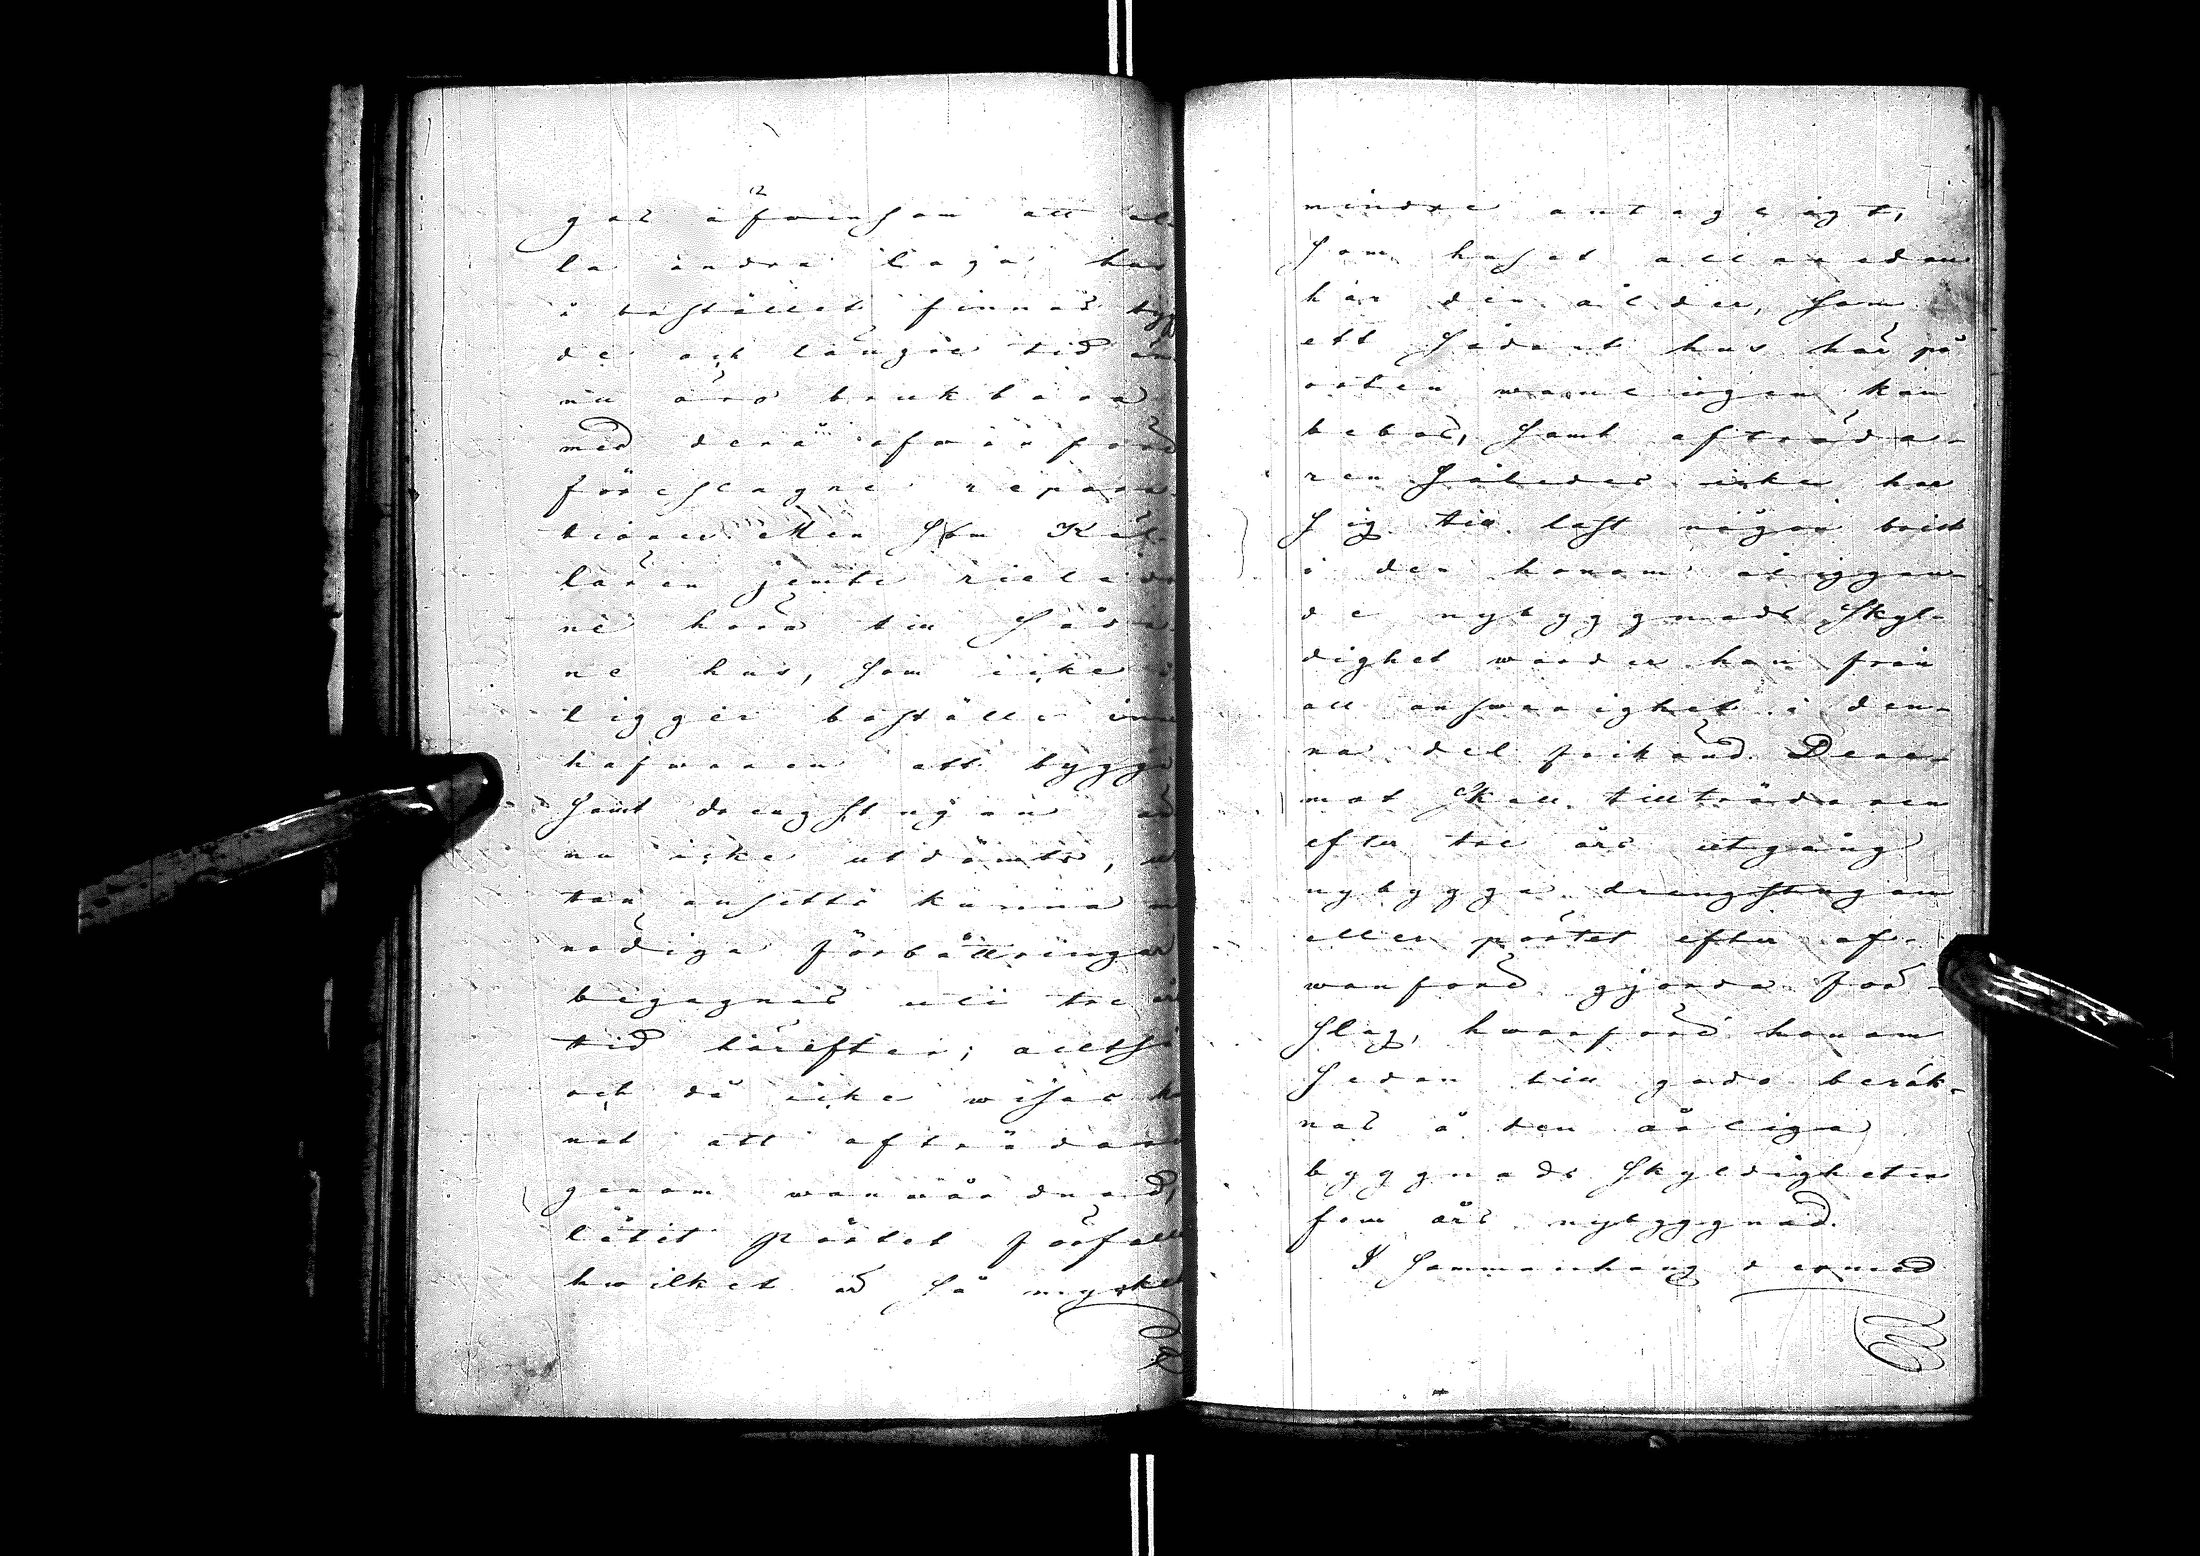 gas äfwensom att al-
la andra laga hus
i bostället finnas
de och längre tid än
nu äro brukbara
med derå ofwanföre
föreslagne repara-
tioner Men som Käl-
laren jemte
ne höra till såda-
ne hus, som icke å-
ligger boställs inne
hafwaren att bygga
samt drengstugan är
nu icke utdömts, u-
tan ansetts kunna med
nödiga förbättringar
begagnas uti tre års
tid härefter; alltså
och då icke wisat
nat att afträdaren
genom wanwårdnad,
låtit pörtet förfalla
hwilket är så mycket
mindre antageligt,
som huset allaredan
har den ålder, som
ett sådant hus här på
orten wanligen kan
bebos, samt afträda-
ren således icke har
sig till last någon brist
i den honom åliggan-
de nybyggnads skyl-
dighet warder han från
all answarighet i den-
na del frikänd. Dere-
mot skall tillträdaren
efter tre års utgång
nybygga drengstugan
eller pörtet efter of-
wanföre gjorda för-
slag, hwarföre honom
sedan till godo beräk-
nas å den årliga
byggnads skyldigheten
fem års nybyggnad.
I sammanhang dermed